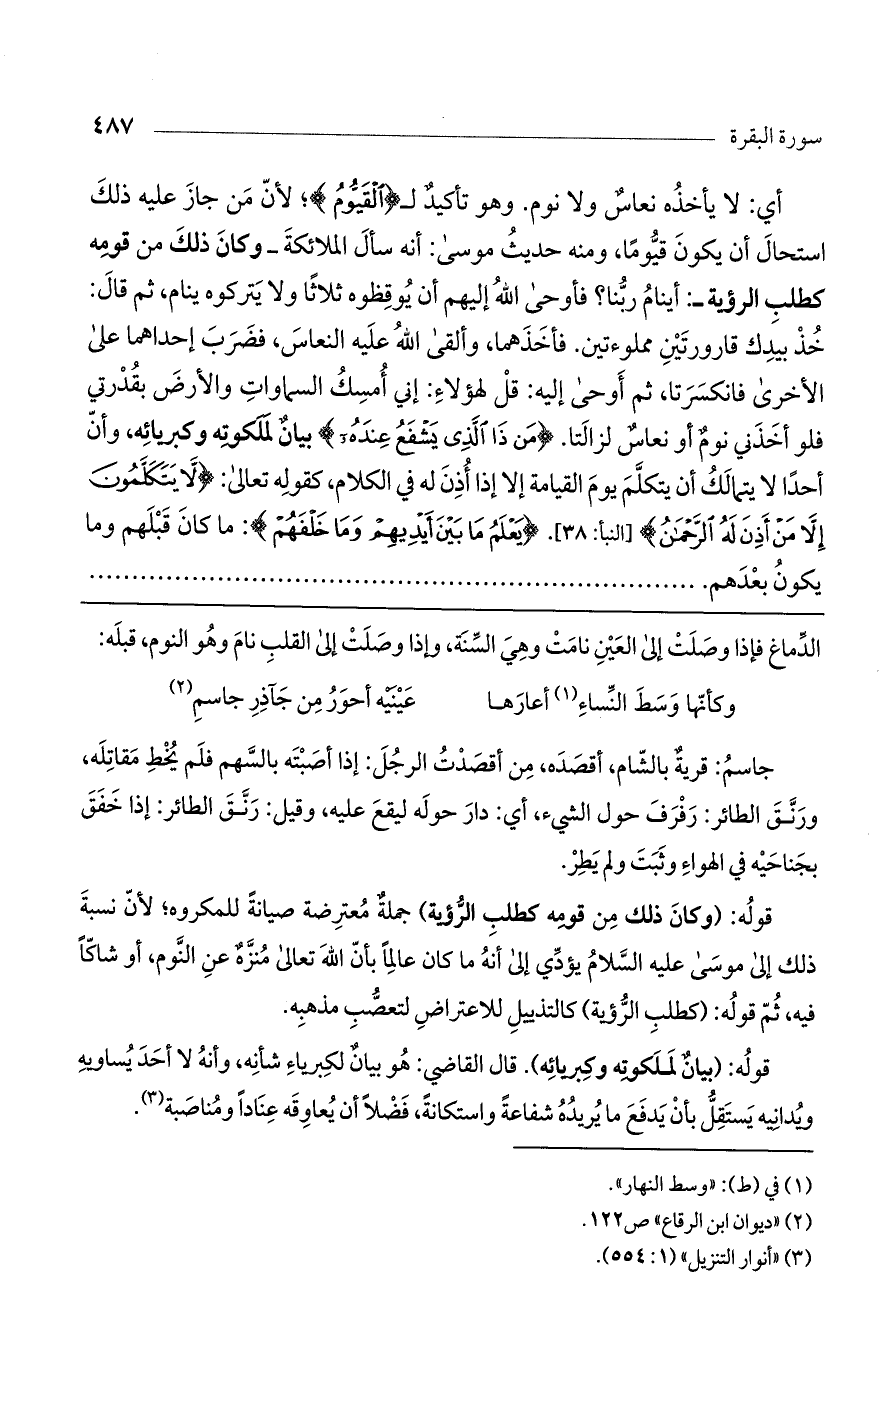 سورة البقرة ٤٨٧
أي: لا يأخذُه نعاسٌ ولا نوم. وهو تأكيدٌ لـ﴿ٱلْقَيُّومُ﴾؛ لأنّ مَن جازَ عليه ذلكَ
استحالَ أن يكونَ قيُّومًا، ومنه حديثُ موسىٰ: أنه سألَ الملائكةَ ـ وكانَ ذلكَ من قومِه
كطلبِ الرؤية ـ: أينامُ ربُّنا؟ فأوحىٰ اللهُ إليهم أن يُوقِظوه ثلاثًا ولا يَتركوه ينام، ثم قالَ:
خُذْ بيدِك قارورتَيْنِ مملوءتين. فأخَذَهما، وألقىٰ اللهُ علَيه النعاسَ، فضَرَبَ إحداهما علىٰ
الأخرىٰ فانكسَرَتا، ثم أَوحىٰ إليه: قلْ لهؤلاءِ: إني أُمسِكُ السماواتِ والأرضَ بقُدْرتي
فلو أخَذَني نومٌ أو نعاسٌ لزالَتا. ﴿مَن ذَا ٱلَّذِى يَشْفَعُ عِندَهُۥٓ﴾ بيانٌ لمَلَكوتِه وكبريائِه، وأنّ
أحدًا لا يتمالَكُ أن يتكلَّمَ يومَ القيامة إلا إذا أُذِنَ له في الكلام، كقولِه تعالىٰ: ﴿لَّا يَتَكَلَّمُونَ
إِلَّا مَنْ أَذِنَ لَهُ ٱلرَّحْمَٰنُ﴾ [النبأ: ٣٨]. ﴿يَعْلَمُ مَا بَيْنَ أَيْدِيهِمْ وَمَا خَلْفَهُمْ﴾: ما كانَ قَبْلَهم وما
يكونُ بعْدَهم. ......................................................................
الدِّماغ فإذا وصَلَتْ إلىٰ العَيْنِ نامَتْ وهِيَ السِّنَة، وإذا وصَلَتْ إلىٰ القلبِ نامَ وهُو النوم، قبلَه:
وكأنّها وَسَطَ النِّساءِ(١) أعارَهـا عَيْنَيْه أحوَرُ مِن جَآذِرِ جاسمِ(٢)
جاسمُ: قريةٌ بالشّام، أقصَدَه، مِن أقصَدْتُ الرجُلَ: إذا أصَبْتَه بالسَّهم فلَم يُخْطِ مَقاتِلَه،
ورَنَّـقَ الطائر: رَفْرَفَ حول الشيء، أي: دارَ حولَه ليقعَ عليه، وقيل: رَنَّـقَ الطائر: إذا خَفَقَ
بجَناحَيْه في الهواءِ وثَبَتَ ولم يَطِرْ.
قولُه: (وكانَ ذلك مِن قومِه كطلبِ الرُّؤية) جملةٌ مُعترِضة صيانةً للمكروه؛ لأنّ نسبةَ
ذلك إلىٰ موسَىٰ عليه السَّلامُ يؤدِّي إلىٰ أنهُ ما كان عالِماً بأنّ اللهَ تعالىٰ مُنزَّهٌ عنِ النَّوم، أو شاكّاً
فيه، ثُمّ قولُه: (كطلبِ الرُّؤية) كالتذييلِ للاعتراضِ لتعصُّبِ مذهبِه.
قولُه: (بيانٌ لمَلَكوتِه وكِبريائِه). قال القاضي: هُو بيانٌ لكِبرياءِ شأنِه، وأنهُ لا أحَدَ يُساويهِ
ويُدانِيه يَستَقِلُّ بأنْ يَدفَعَ ما يُريدُهُ شفاعةً واستكانةً، فَضْلاً أن يُعاوِقَه عِنَاداً ومُناصَبة(٣).
(١) في (ط): «وسط النهار».
(٢) «ديوان ابن الرقاع» ص١٢٢.
(٣) «أنوار التنزيل» (١: ٥٥٤).